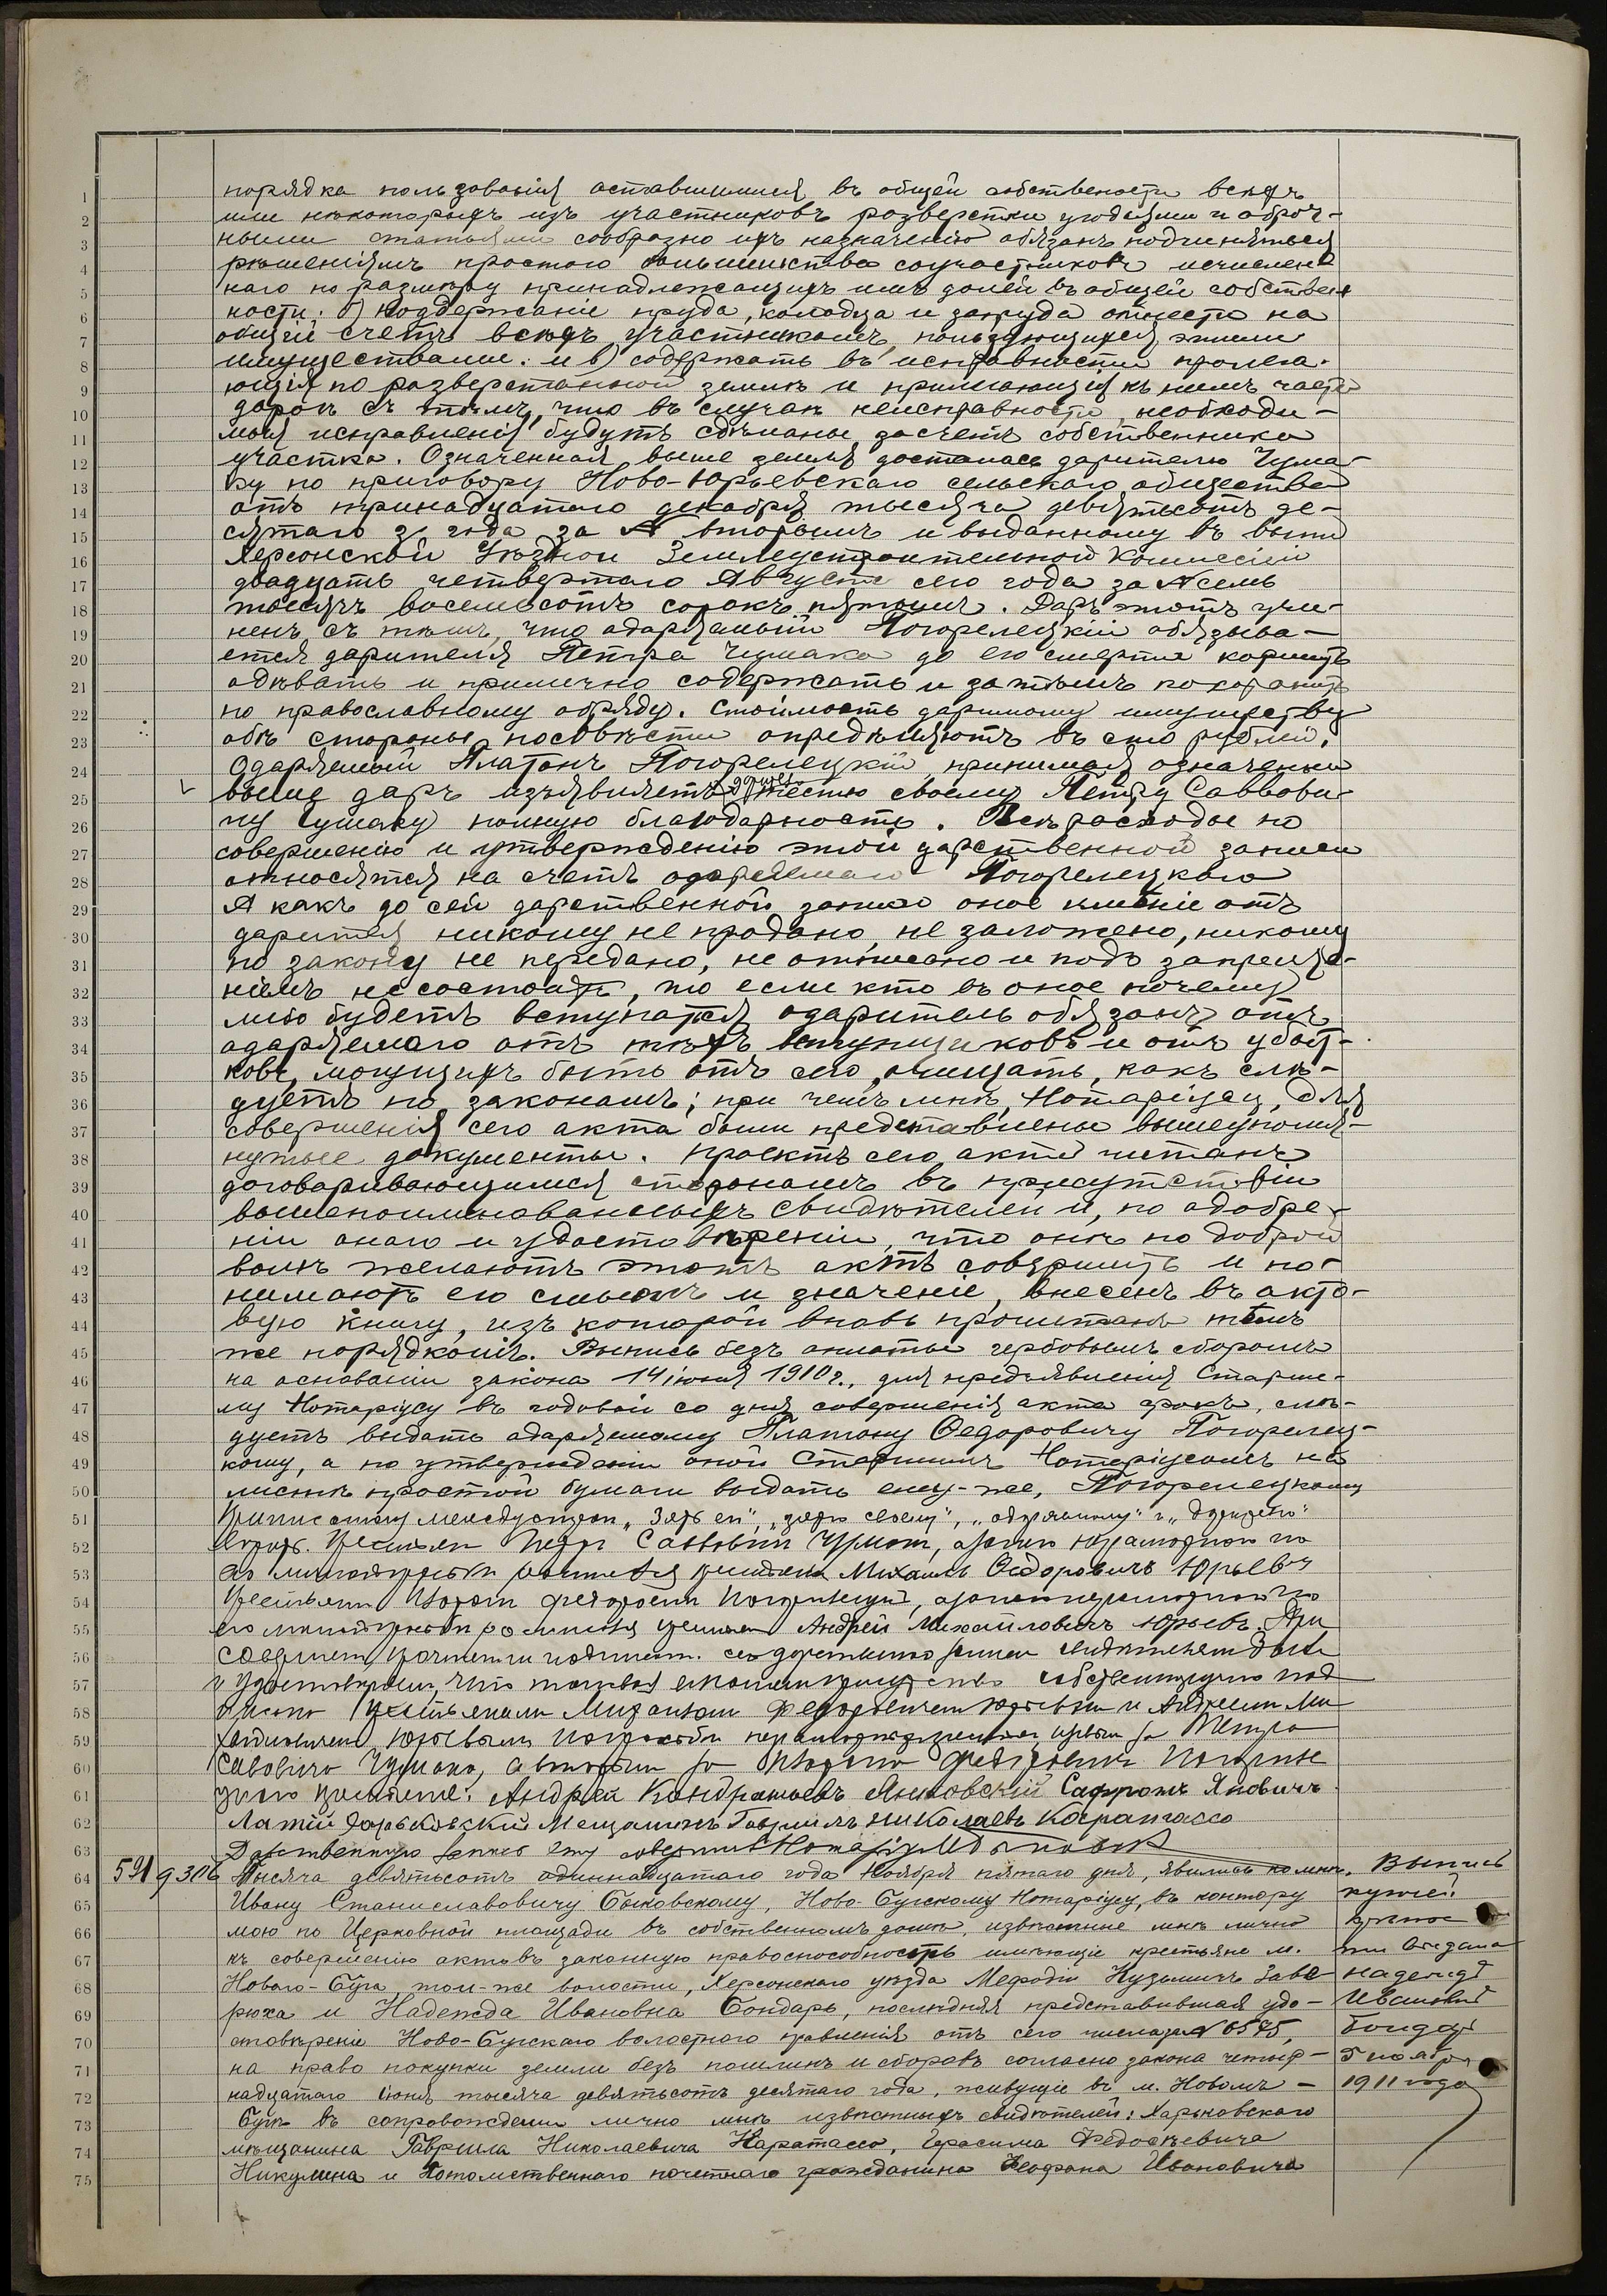 порядка пользованія оставшимися въ общей собствености всѣхъ
или нѣкоторыхъ изъ участниковъ разверстки угодьями и оброч-
ными статьями сообразно ихъ назначенію обязанъ подчиняться
рѣшеніямъ простого большинства соучастниковъ исчислен
наго по размѣру принадлежащихъ имъ долей въ общей собствен
ности; б) поддержаніе пруда, колодца и запруда отнести на
общій счетъ всѣхъ участникамъ, пользующихся этими
имуществами. и в) содержать въ исправности пролега-
ющія по разверстанной землѣ и прилегающія къ нимъ части
дорогъ съ тѣмъ, что въ случаѣ неисправности, необходи-
мыя исправленія будутъ сдѣланы за счетъ собственника
участка. Означенная выше земля досталась дарителю Чума-
ку по приговору Ново-Юрьевскаго сельскаго общества
отъ тринадцатаго декабря тысяча девятьсотъ де-
сятаго года за № вторымъ и выданному въ выпи
Херсонской Уѣздной Землеустроительной Комиссіи
двадцать четвертаго Августа сего года за № семь
тысячъ восемьсотъ сорокъ пятымъ. Даръ этотъ учи-
ненъ съ тѣмъ, что одаряемый Погорелецкій обязыва-
ется дарителя Петра Чумака до его смерти кормить
одѣвать и прилично содержать и затѣмъ похоронить
по православному обряду. Стоимость даримому имуществу
обѣ стороны по совѣсти опредѣляютъ въ сто рублей.
Одаряемый Платонъ Погорелецкій принимая означеный
выше даръ изъявляетъ тестю своему Петру Саввови-
чу Чумаку полную благодарность. Всѣ расходы по
совершенію и утвержденію этой дарственной записи
относятся на счетъ одаряемаго Погорелецкаго
А какъ до сей дарственной записи оное имѣніе отъ
дарителя никому не продано, не заложено, никому
по закону не передано, не отписано и подъ запреще-
ніемъ не состоитъ, то если кто въ оное почему
либо будетъ вступатся, одаритель обязанъ отъ
одаряемаго отъ тѣхъ вступщиковъ и отъ убыт-
ковъ, могущихъ быть отъ сего, очищать, какъ слѣ-
дуетъ по законамъ; при чемъ мнѣ, Нотаріусу, для
совершенія сего акта были представлены вышеупомя-
нутые документы. Проектъ сего акта читанъ
договаривающимся сторонамъ въ присутствіи
вышепоименованныхъ свидѣтелей и, по одобре-
ніи онаго и удостовѣреніи, что они по доброй
волѣ желаютъ этотъ актъ совершить и по-
нимаютъ его смыслъ и значеніе, внесенъ въ акто-
вую книгу, изъ которой вновь прочитанъ тѣмъ
же порядкомъ. Выпись безъ оплаты гербовымъ сборомъ
на основаніи закона 14 іюня 1910 г., для предъявленія Старше-
му Нотаріусу въ годовой со дня совершенія акта срокъ, слѣ-
дуетъ выдать одаряемому Платону Ѳедоровичу Погорелец-
кому, а по утвержденіи оной Старшимъ Нотаріусомъ на
листѣ простой бумаги выдать ему-же, Погорелецкому
Михаилъ Ѳедоровичъ Юрьевъ
Андрей Михайловичъ Юрьевъ. При
Андрей Кондратьевъ Яновскій Сафронъ
Мещанинъ Гавріилъ Николаевъ Каратассо
Дарственную запись эту совершилъ Нотаріусъ
591 9306 Тысяча девятьсотъ одиннадцатаго года Ноября пятаго дня, явились ко мнѣ,
Ивану Станиславовичу Быковскому, Ново-Бугскому Нотаріусу, въ контору
мою по Церковной площади въ собственномъ домѣ, извѣстные мнѣ лично
къ совершенію актовъ законную правоспособность имѣющіе крестьяне м.
Новаго-Буга, той-же волости, Херсонскаго уѣзда Мефодій Кузьмичъ Заве
рюха и Надежда Ивановна Бондарь, послѣдняя представившая удо-
стовѣреніе Ново-Бугскаго волостного правленія отъ сего числа за № 6545,
на право покупки земли безъ пошлинъ и сборовъ согласно закона четыр-
надцатаго іюня тысяча девятьсотъ десятаго года, живущіе въ м. Новомъ-
Бугѣ въ сопровожденіи лично мнѣ извѣстныхъ свидѣтелей: Харьковскаго
мѣщанина Гавріила Николаевича Каратассо, Герасима Федосѣевича
Никулина и Потомственнаго почетнаго гражданина Ивановича
Выпись
купчей
выдана
Надеждѣ
Ивановнѣ
Бондарь
5 ноября
1911 года